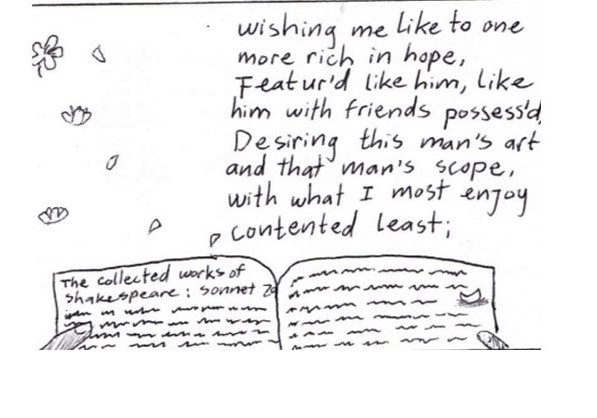 wishing me like to one
more rich in hope,
Featur'd like him, like
him with friends possess'd,
Desiring this man's art
and that man's scope,
with what I most enjoy
contented least;
The collected works of
Shakespeare: sonnet 29